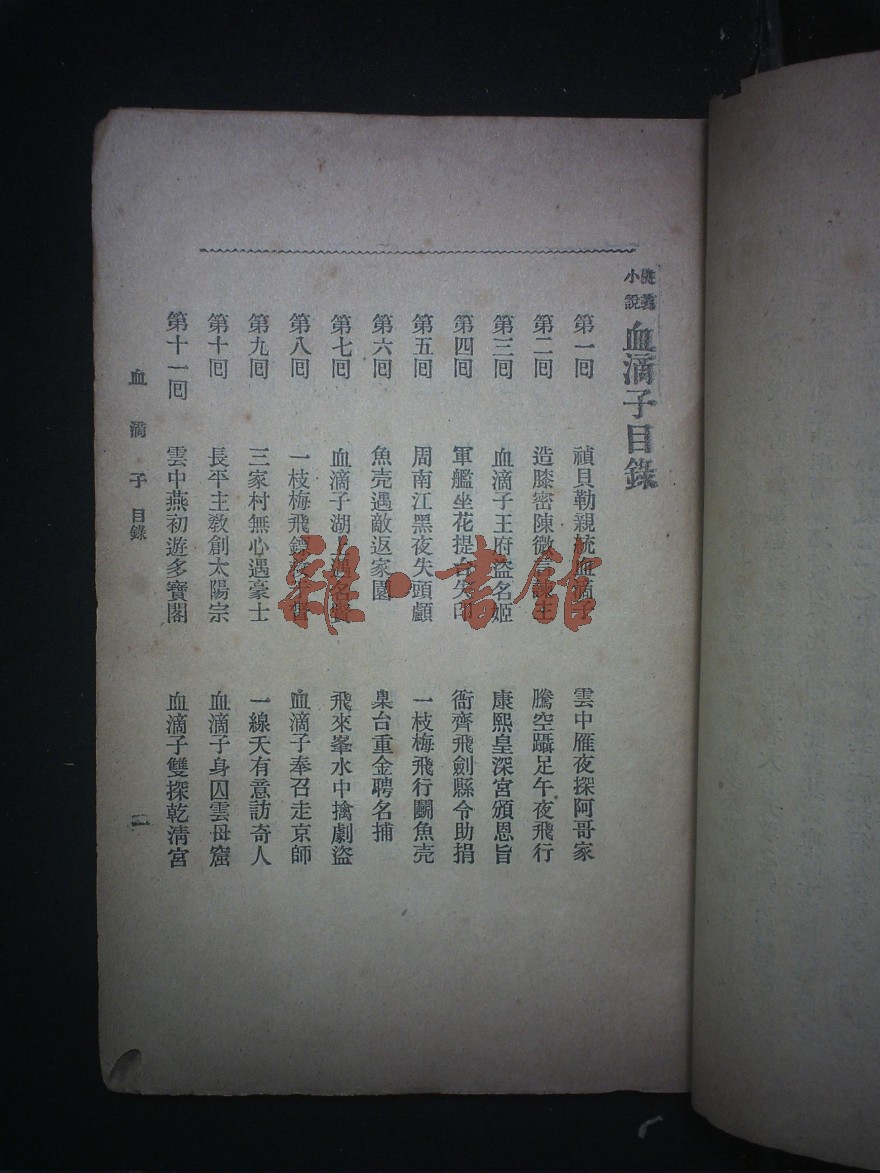 俠義小說 血滴子目錄
第一回 禎貝勒親統血滴子 雲中雁夜探阿哥家
第二回 造膝密陳微言誅生 騰空躡足午夜飛行
第三回 血滴子王府盜名姬 康熙皇深宮頒恩旨
第四回 軍艦坐花提台失印 衙齊飛劍縣令助捐
第五回 周南江黑夜失頭顱 一枝梅飛行鬭魚壳
第六回 魚壳遇敵返家園 臬台重金聘名捕
第七回 血滴子湖上遇名賢 飛來峯水中擒劇盜
第八回 一枝梅飛鏢 血滴子奉召走京師
第九回 三家村無心遇豪士 一線天有意訪奇人
第十回 長平主教創太陽宗 血滴子身囚雲母窟
第十一回 雲中燕初遊多寶閣 血滴子雙探乾淸宮
血滴子 目錄
二
雜·書館